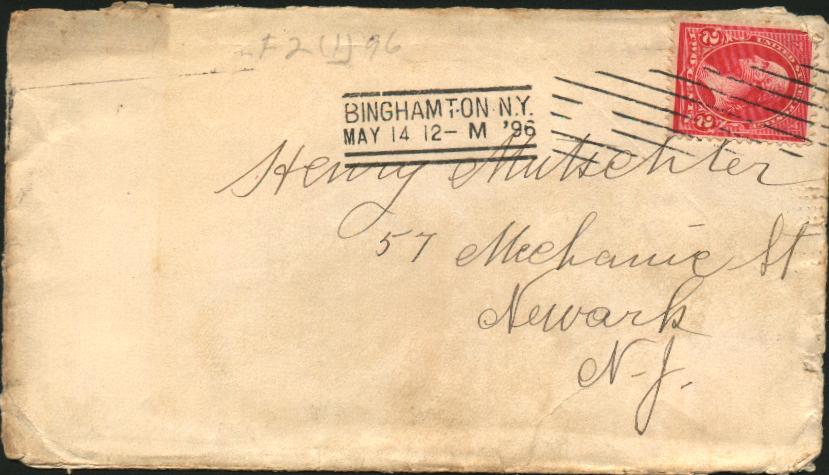 F2(1)96
BINGHAMTON. N.Y.
MAY 14 12-M '96
Henry Mutschler
57 Mechanic St
Newark
N-J.
2 2